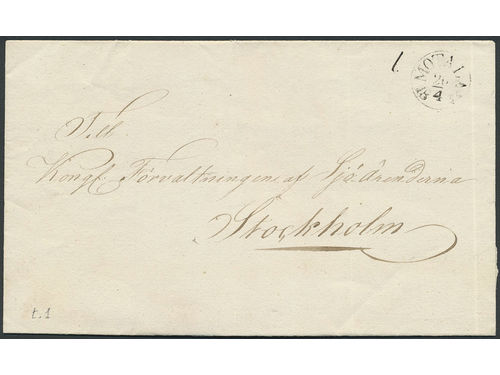 MOTALA
26
4
Till
Kongl. Förvaltningen af Sjö Ärenderna
Stockholm
t.1